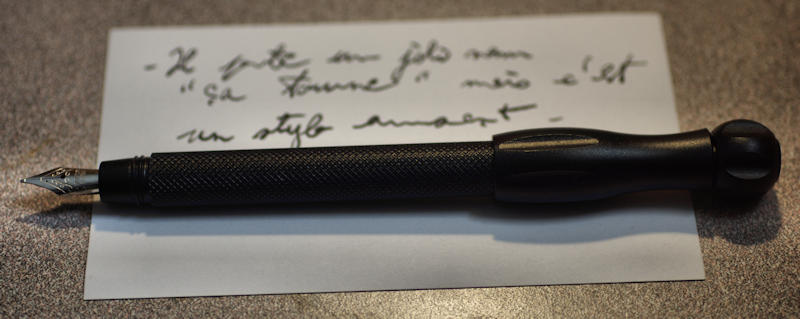 - Il porte un joli nom
"ça tourne" mais c'est
un stylo amusant -